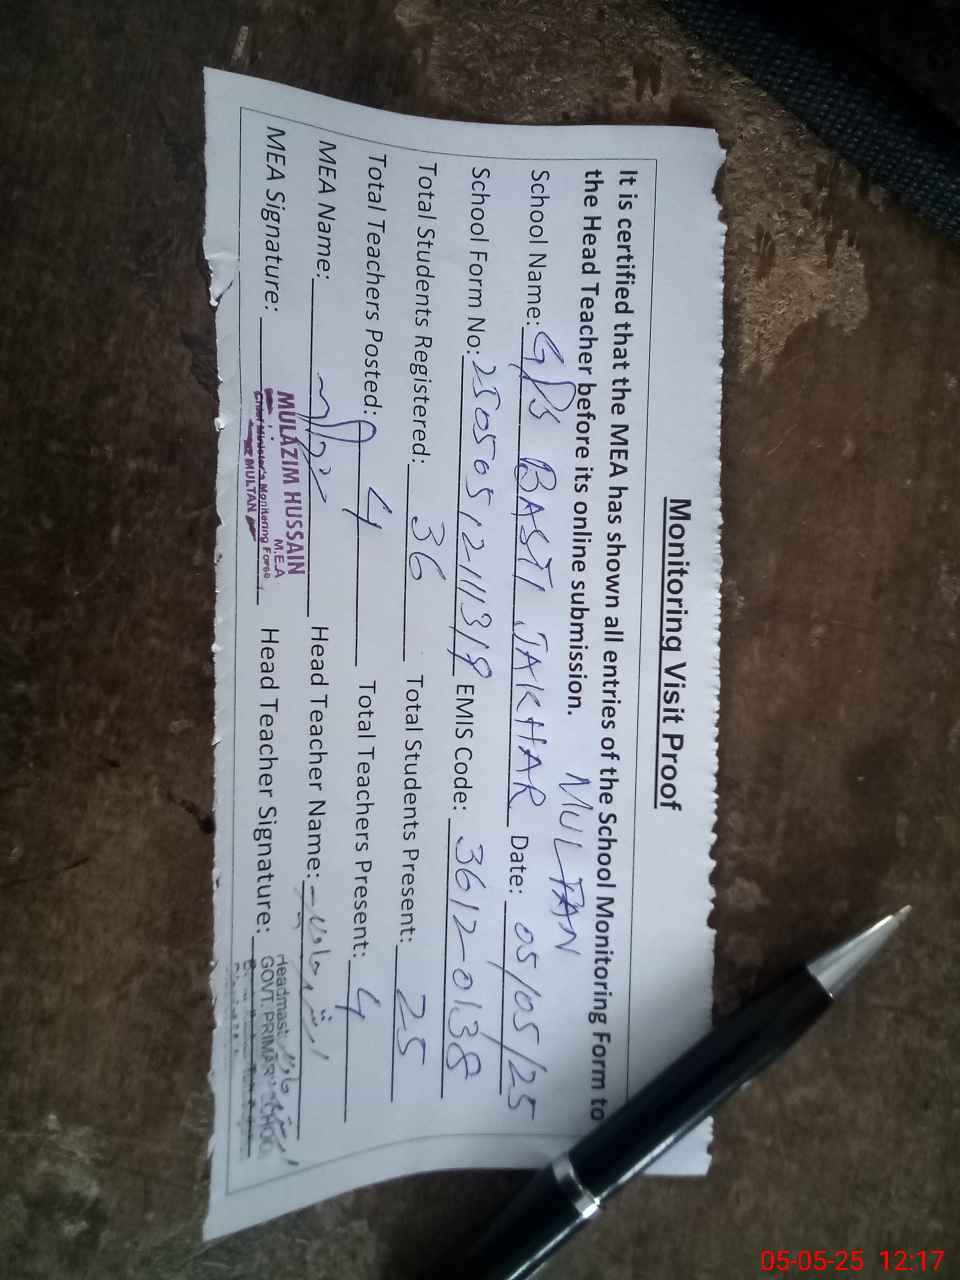 Monitoring Visit Proof
It is certified that the MEA has shown all entries of the School Monitoring Form to
the Head Teacher before its online submission. MULTAN
School Name: GPS BASTI JAKHAR Date: 05/05/25
School Form No: EMIS Code: 3612-0138
Total Students Registered: 36 Total Students Present: 25
Total Teachers Posted: 4 Total Teachers Present: 4
MEA Name: Head Teacher Name:
MEA Signature: Head Teacher Signature:
MULAZIM HUSSAIN
M.E.A
Chief Minister's Monitoring Force
MULTAN
GOVT. PRIMARY
05-05-25 12:17